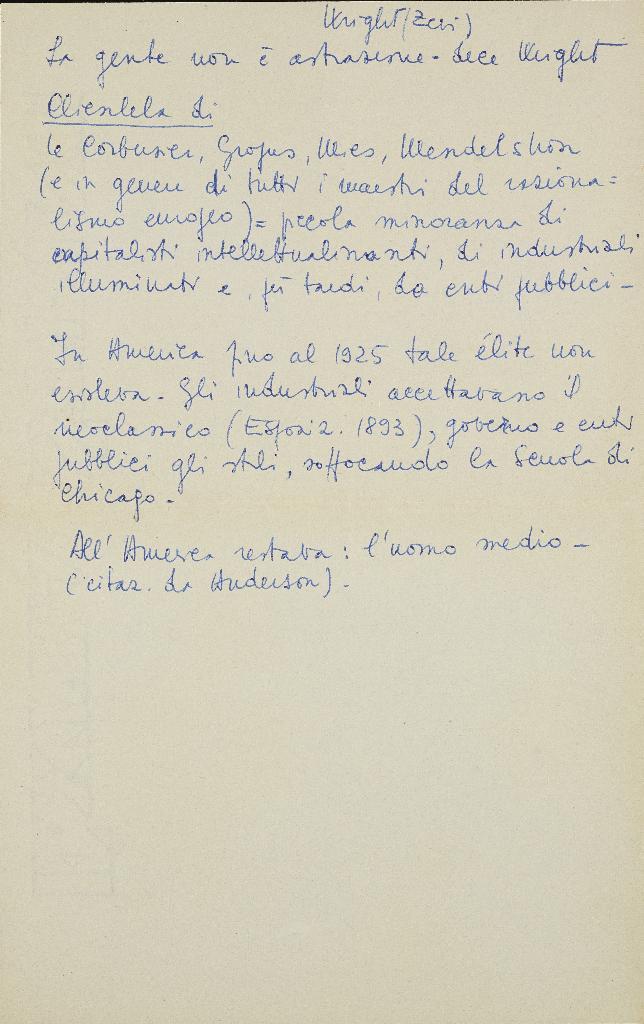 Wright (Zevi)
La gente non è astrazione - dice Wright
Clientela di
le Corbusier, Gropius, Mies, Mendelshon
(e in genere di tutti i maestri del raziona=
lismo europeo) = piccola minoranza di
capitalisti intellettualizzanti, di industriali
illuminati e, più tardi, da enti pubblici -
In America fino al 1925 tale élite non
esisteva - Gli industriali accettavano il
neoclassico (Esposiz. 1893), governo e enti
pubblici gli stili, soffocando la Scuola di
Chicago -
All'America restava: l'uomo medio -
(citaz. da Anderson) -